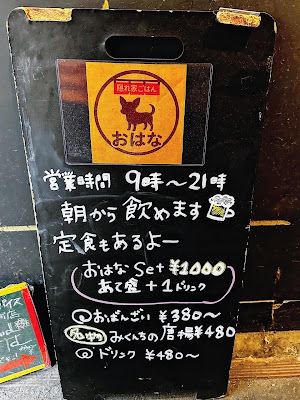 隠れ家ごはん
おはな
営業時間 9時～21時
朝から飲めます
定食もあるよー
おはな Set ¥1000
あて盛 + 1ドリンク
おばんざい ¥380～
みくんちの唐揚 ¥480
ドリンク ¥480～